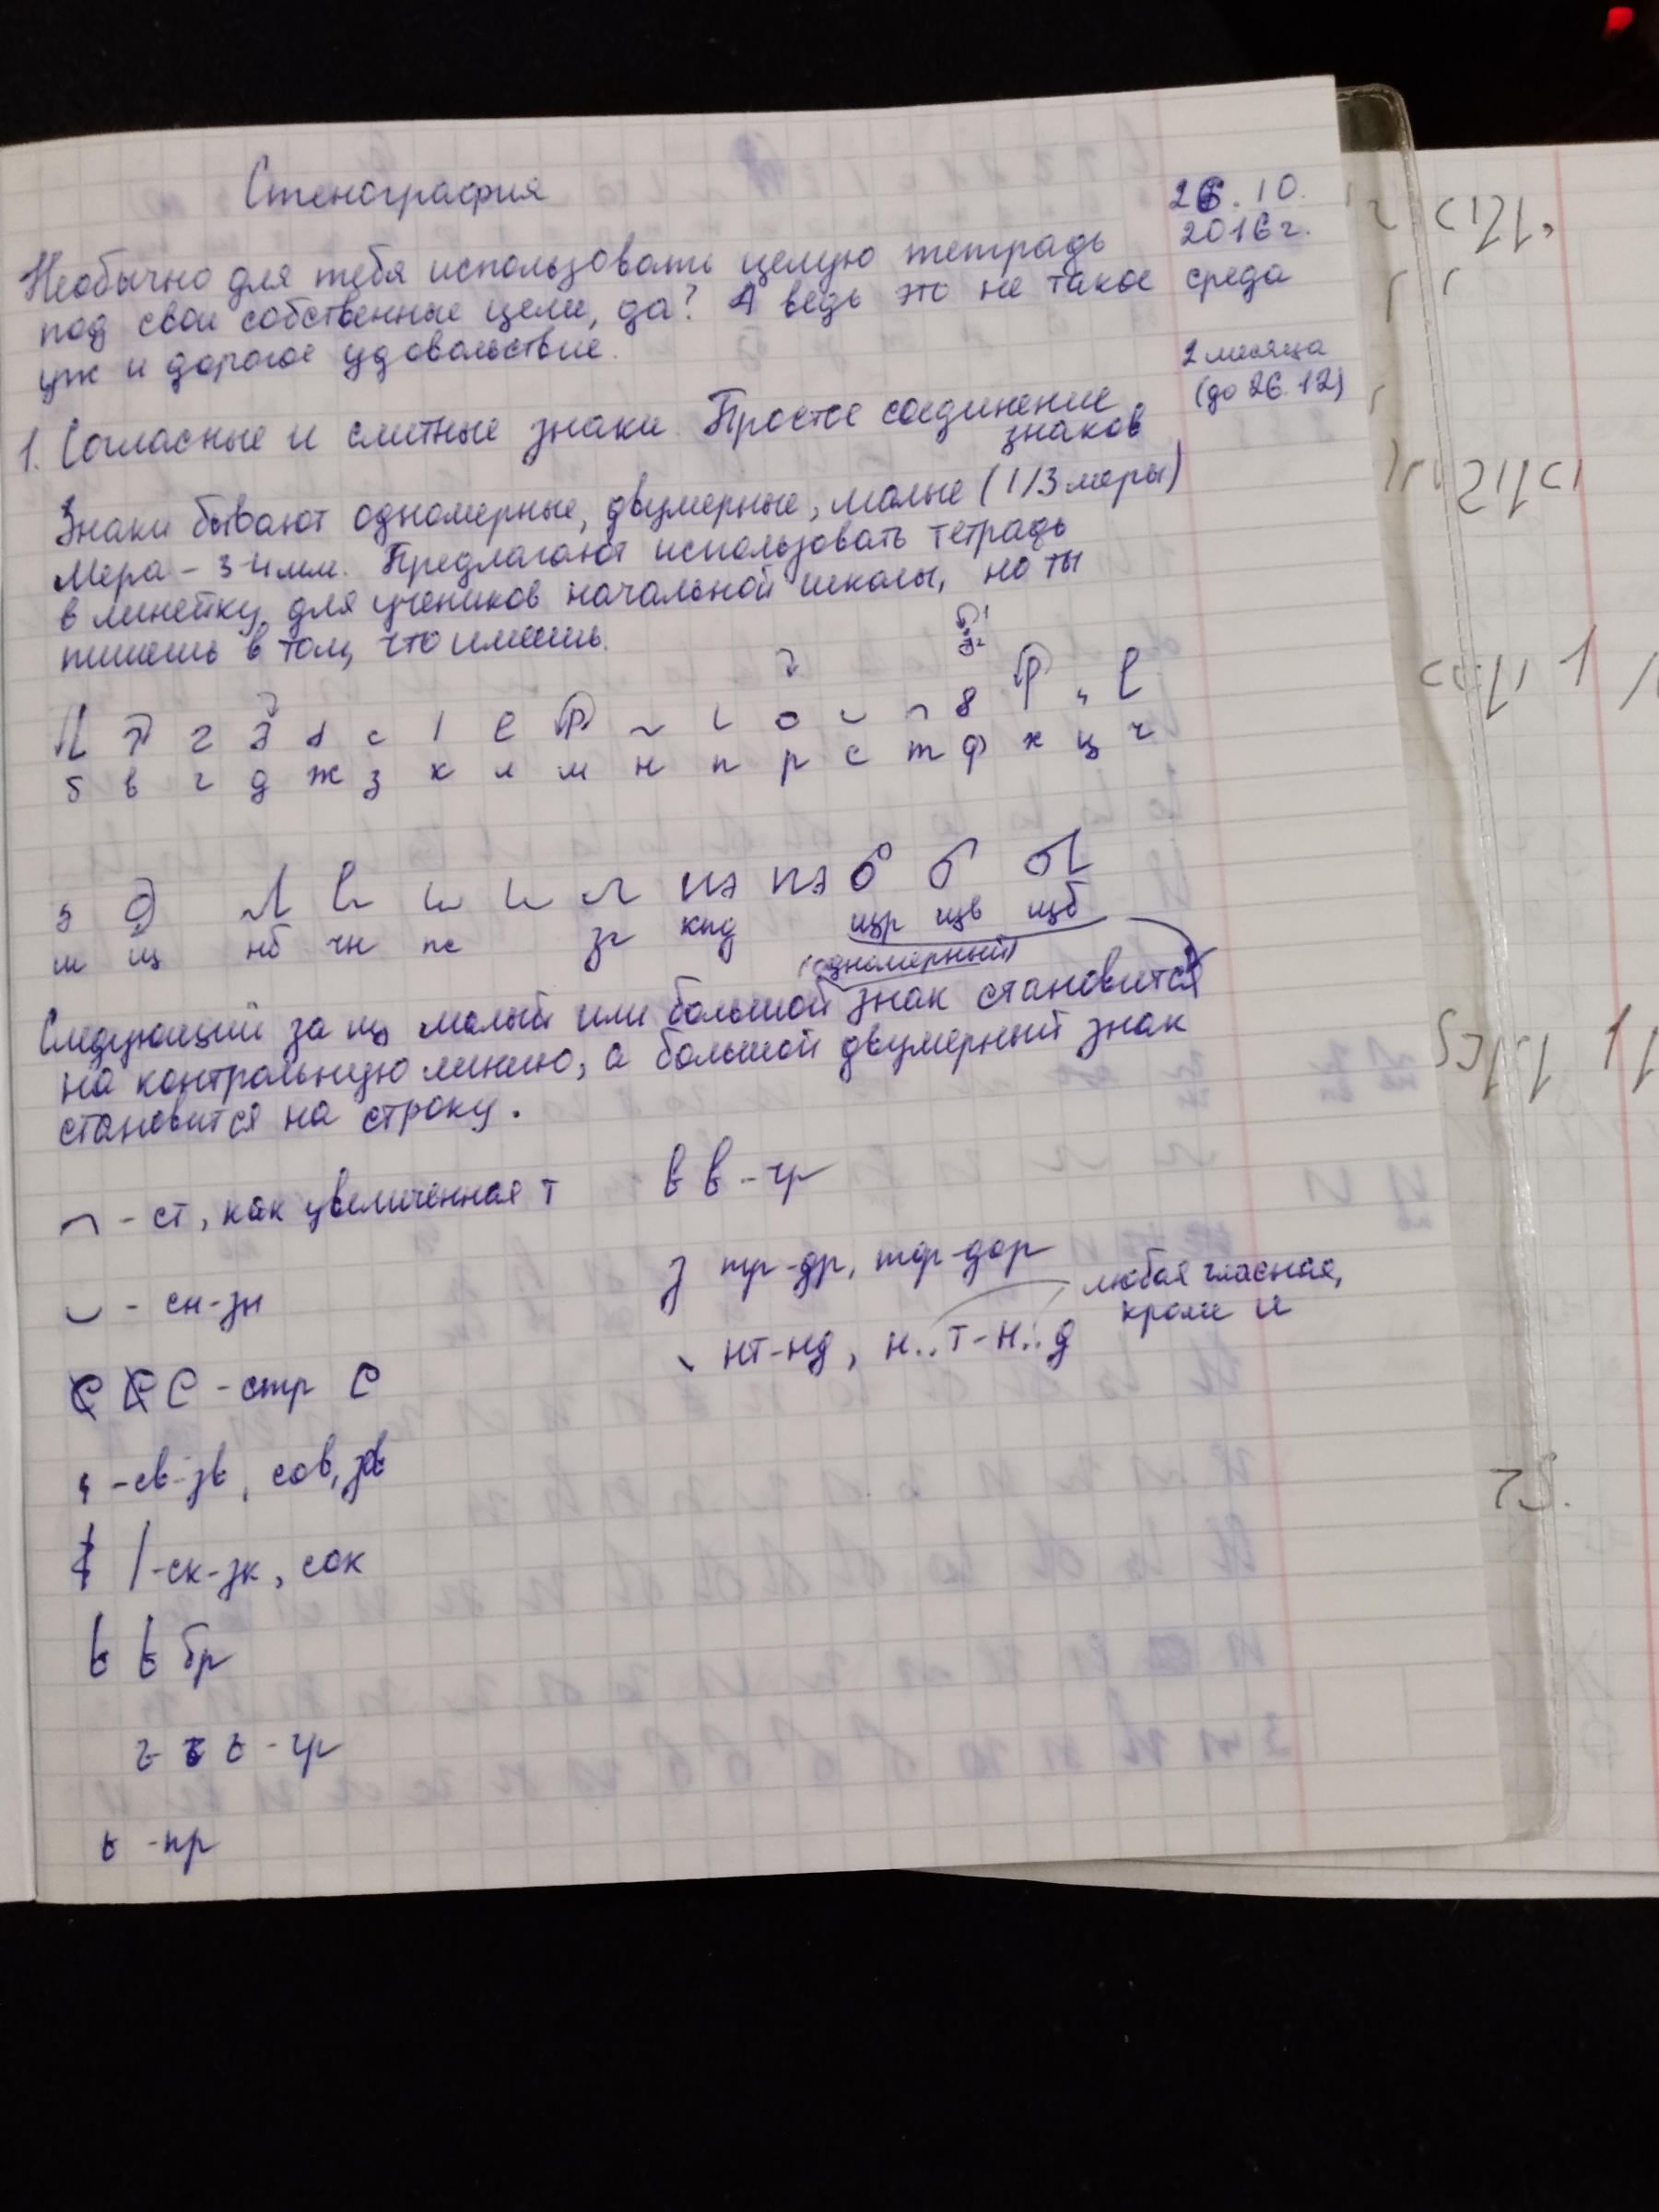 Стенография
26.10.
2016 г.
среда
Необычно для тебя использовать целую тетрадь
под свои собственные цели, да? А ведь это не такое
уж и дорогое удовольствие.
2 месяца
(до 26.12)
1. Согласные и слитные знаки. Простое соединение
знаков
Знаки бывают одномерные, двумерные, малые (1/3 меры)
Мера - 3-4 мм. Предлагают использовать тетрадь
в линейку, для учеников начальной школы, но ты
пишешь в том, что имеешь.
б в г д ж з к л м н п р с т ф х ц ч
ш щ нб чн пс зг кпд щр щв щб
(одномерный)
Следующий за щ малый или большой знак становится
на контрольную линию, а большой двумерный знак
становится на строку.
- ст, как увеличенная т
- чр
- сн-зн
тр-др, тор-дор
любая гласная,
кроме и
нт-нд, н..т-н..д
- стр
-св-зв, сов, зов
-ск-зк, сок
бр
- гр
-пр